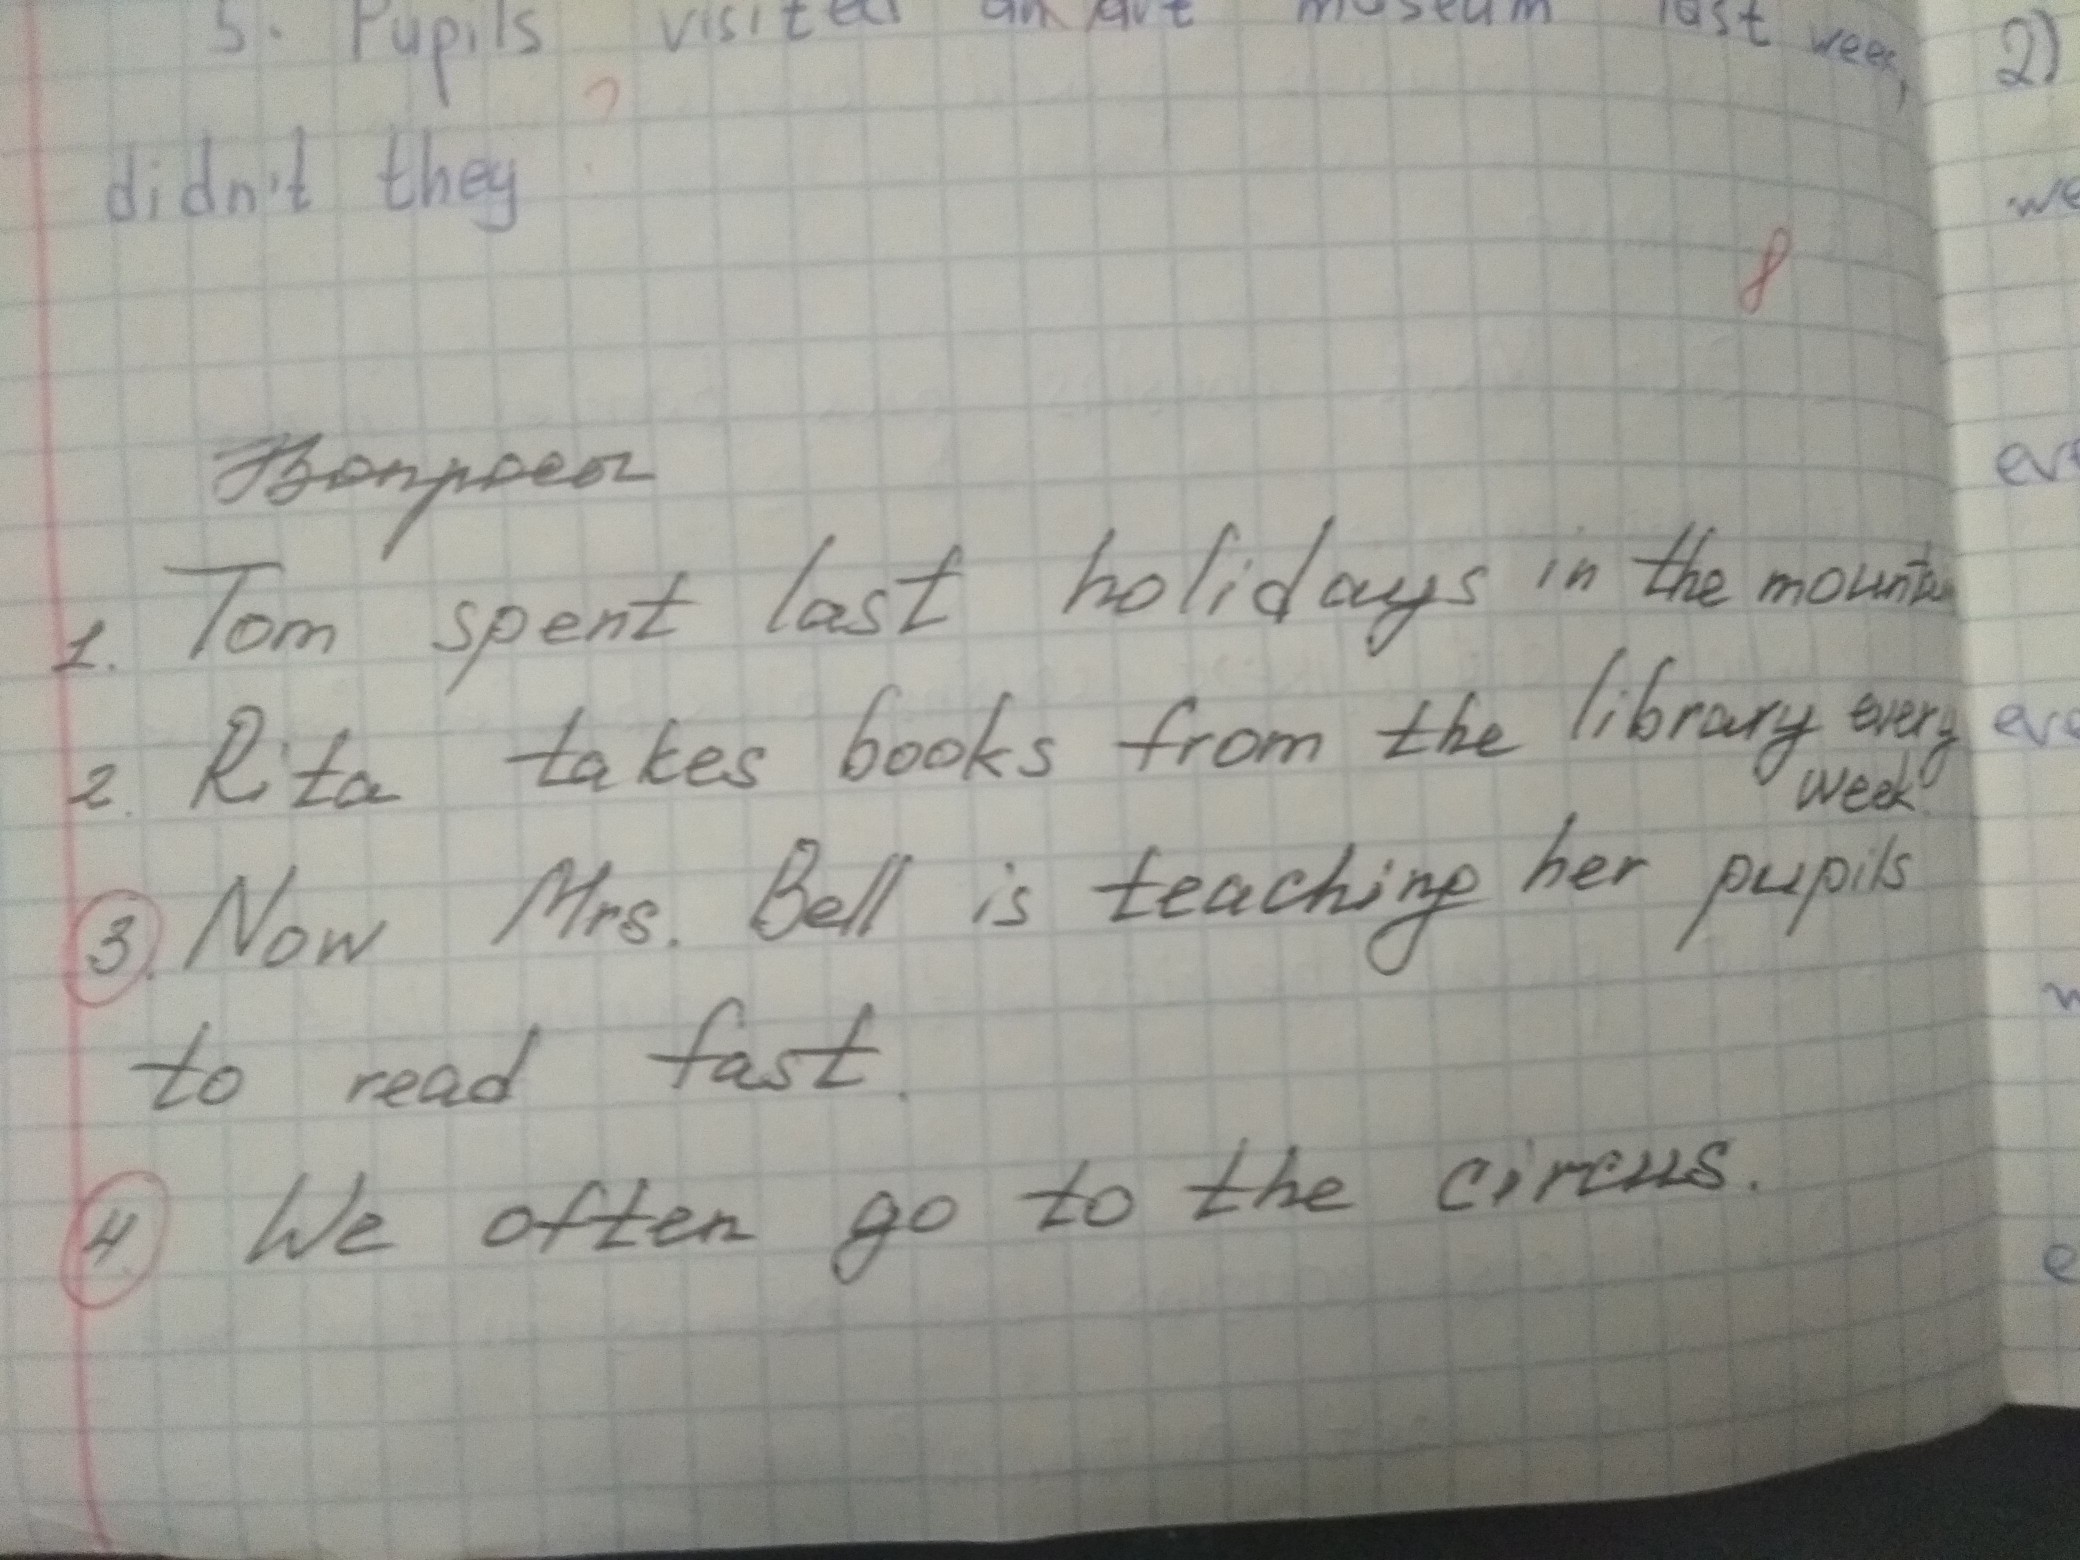 5. Pupils visited an art museum last week,
didn't they ?
8
Вопросы
1. Tom spent last holidays in the
2. Rita takes books from the library every
week.
3. Now Mrs. Bell is teaching her pupils
to read fast.
4. We often go to the circus.
2)